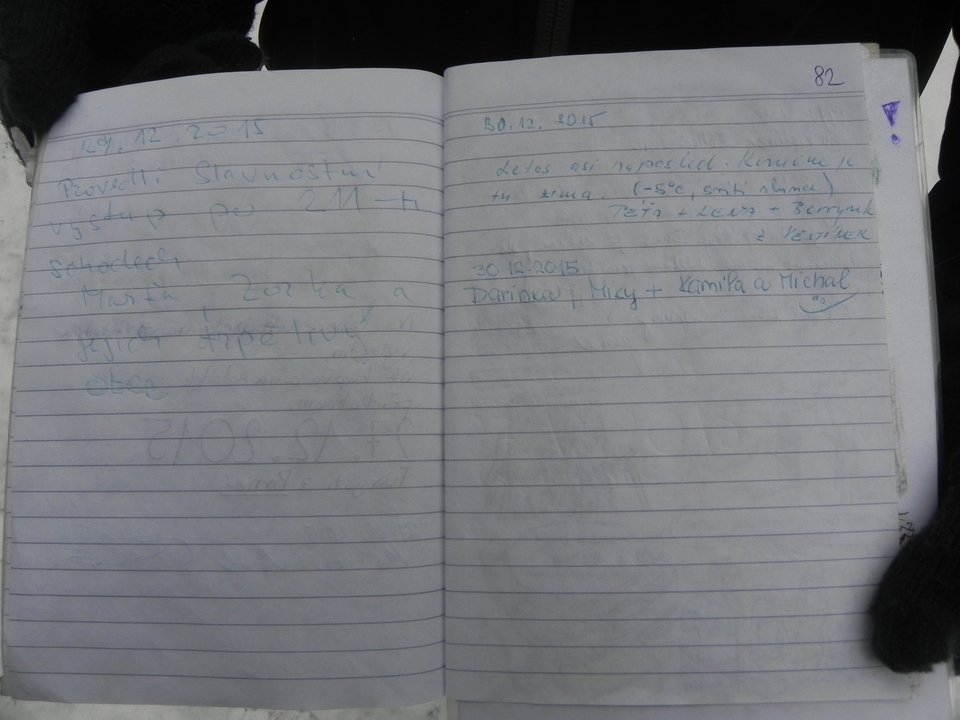 29.12.2015
Provedli Slavnostní
výstup po 211-ti
schodech
Marťa, Zorka a
jejich trpělivý
otec
82
30.12.2015
Letos asi naposled. Konečně je
tu zima. (-5°C, svítí slunce)
PEŤA + LENA +
30.12.2015
Darinka, Miky + Kamila a Michal
27.12.2015